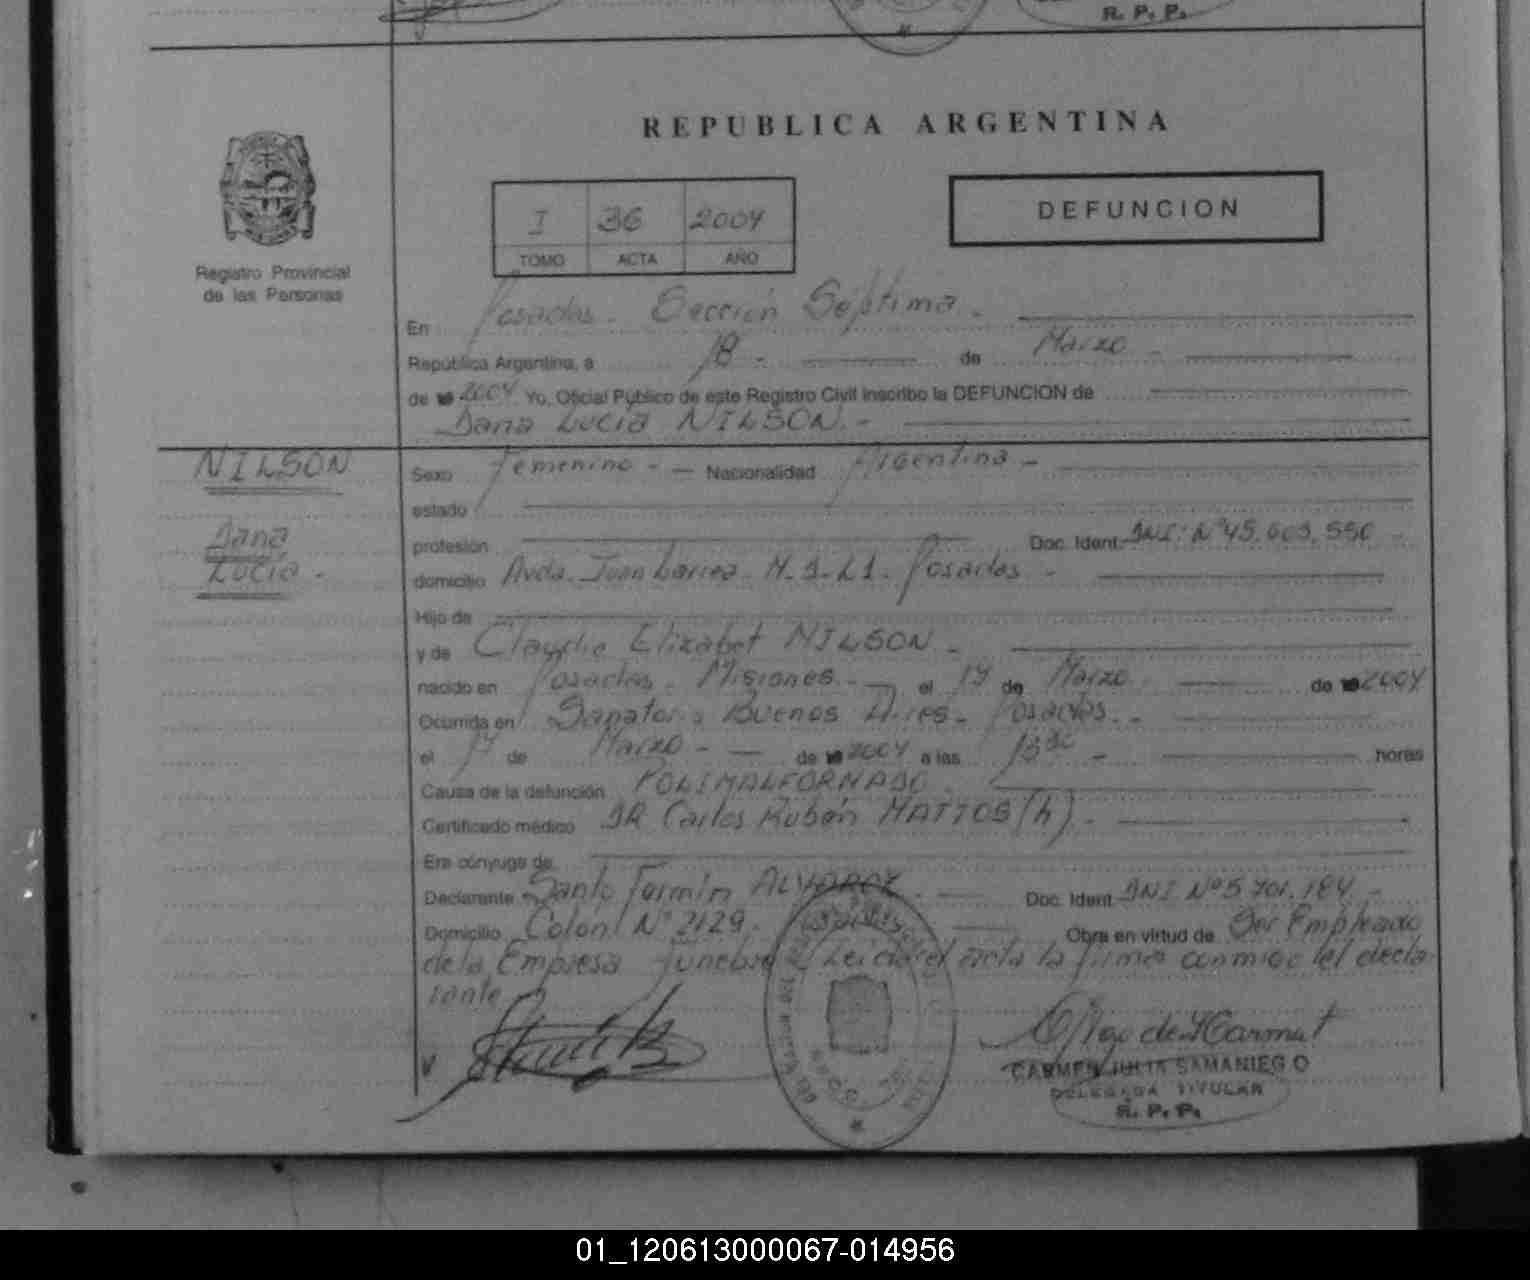 R. P. P.
REPUBLICA ARGENTINA
DEFUNCION
I 36 2004
TOMO ACTA AÑO
Registro Provincial
de las Personas
En Posadas. Sección Séptima.
República Argentina, a 18 - de Marzo -
de 2004 Yo, Oficial Público de este Registro Civil inscribo la DEFUNCION de
Dana Lucía NILSON. -
NILSON
Dana
Lucía -
Sexo Femenino - Nacionalidad Argentina -
estado
profesión Doc. Ident. DNI: Nº 45.603.550
domicilio Avda. Juan Larrea - M. 9-L1. Posadas -
Hijo de
y de Claudia Elizabet NILSON -
nacido en Posadas. Misiones. - el 17 de Marzo de 2004
Ocurrida en Sanatorio Buenos Aires - Posadas. -
el 17 de Marzo - de 2004 a las horas
Causa de la defunción POLIMALFORMADO
Certificado médico DR Carlos Rubén MATTOS (h) -
Era cónyuge de
Declarante Santo Fermín ALVAREZ Doc. Ident. DNI Nº 5.701.184 -
Domicilio Colon Nº 2129. Obra en virtud de Ser Empleado
de la Empresa funebre Leída el acta la firma conmigo el decla
rante
CARMEN JULIA SAMANIEGO
DELEGADA TITULAR
R. P. P.
01_120613000067-014956